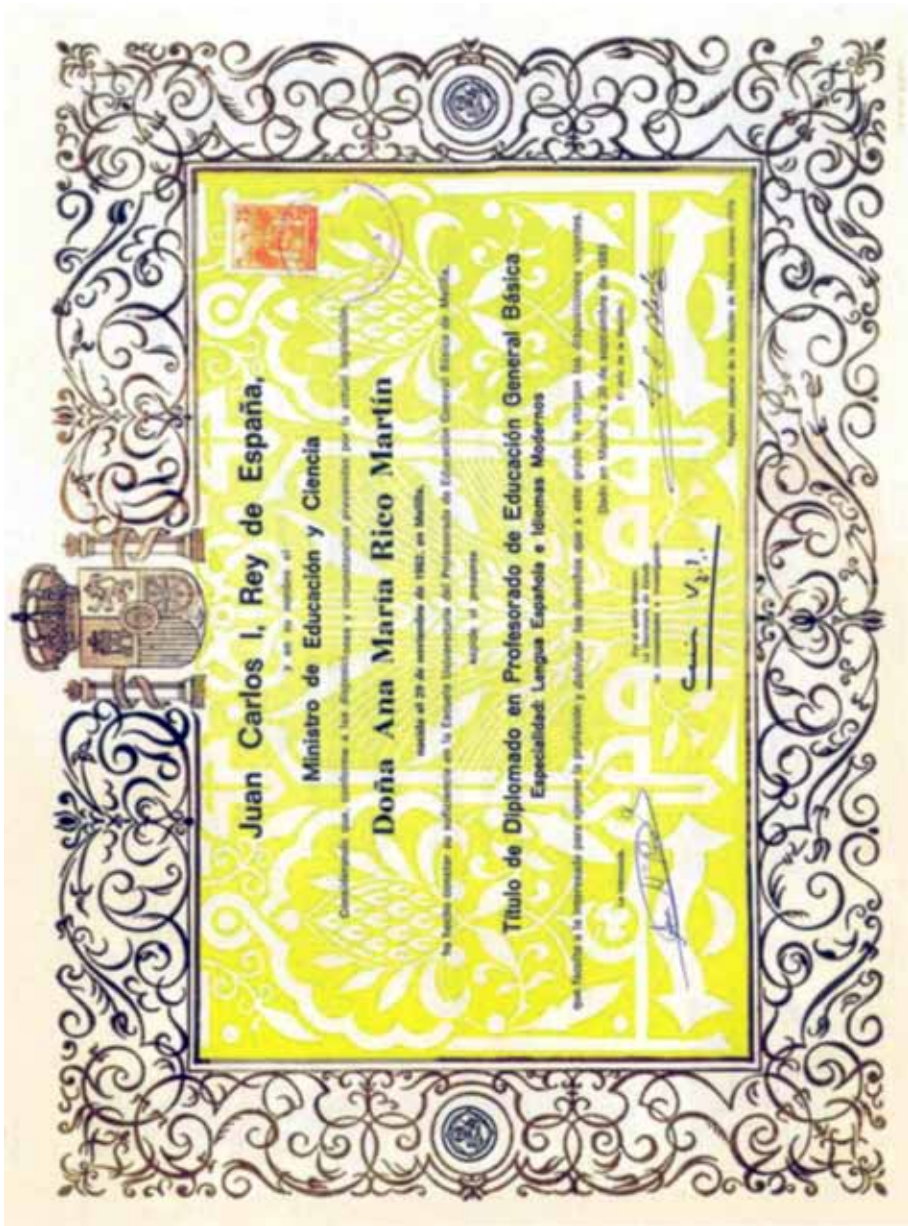 Juan Carlos I, Rey de España,
y en su nombre el
Ministro de Educación y Ciencia
Considerando que, conforme a las disposiciones y circunstancias prevenidas por la actual legislación,
Doña Ana María Rico Martín
nacida el 29 de noviembre de 1962, en Melilla,
ha hecho constar su suficiencia en la Escuela Universitaria del Profesorado de Educación General Básica de Melilla,
expide el presente
Título de Diplomado en Profesorado de Educación General Básica
Especialidad: Lengua Española e Idiomas Modernos
que faculta a la interesada para ejercer la profesión y disfrutar los derechos que a este grado le otorgan las disposiciones vigentes.
Dado en Madrid, a de de
La interesada,
El Jefe de la Sección,
Registro especial de la Sección de Títulos